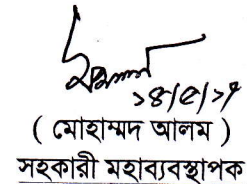 ১৪/৫/১৭
( মোহাম্মদ আলম )
সহকারী মহাব্যবস্থাপক